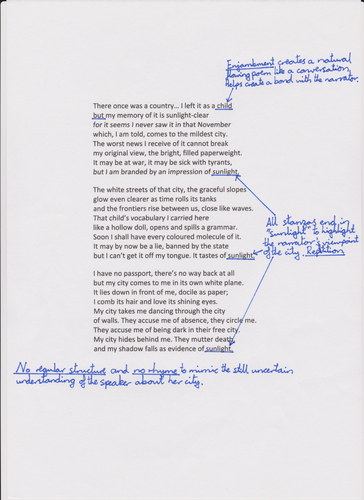 Enjambment creates a natural
flowing poem like a conversation,
Helps create a bond with the narrator.
There once was a country… I left it as a child
but my memory of it is sunlight-clear
for it seems I never saw it in that November
which, I am told, comes to the mildest city.
The worst news I receive of it cannot break
my original view, the bright, filled paperweight.
It may be at war, it may be sick with tyrants,
but I am branded by an impression of sunlight.
The white streets of that city, the graceful slopes
glow even clearer as time rolls its tanks
and the frontiers rise between us, close like waves.
That child's vocabulary I carried here
like a hollow doll, opens and spills a grammar.
Soon I shall have every coloured molecule of it.
It may by now be a lie, banned by the state
but I can't get it off my tongue. It tastes of sunlight.
All stanzas end in
"sunlight" to highlight
the narrator's viewpoint
of the city. Repetition
I have no passport, there's no way back at all
but my city comes to me in its own white plane.
It lies down in front of me, docile as paper;
I comb its hair and love its shining eyes.
My city takes me dancing through the city
of walls. They accuse me of absence, they circle me.
They accuse me of being dark in their free city.
My city hides behind me. They mutter death,
and my shadow falls as evidence of sunlight.
No regular structure and no rhyme to mimic the still uncertain
understanding of the speaker about her city.